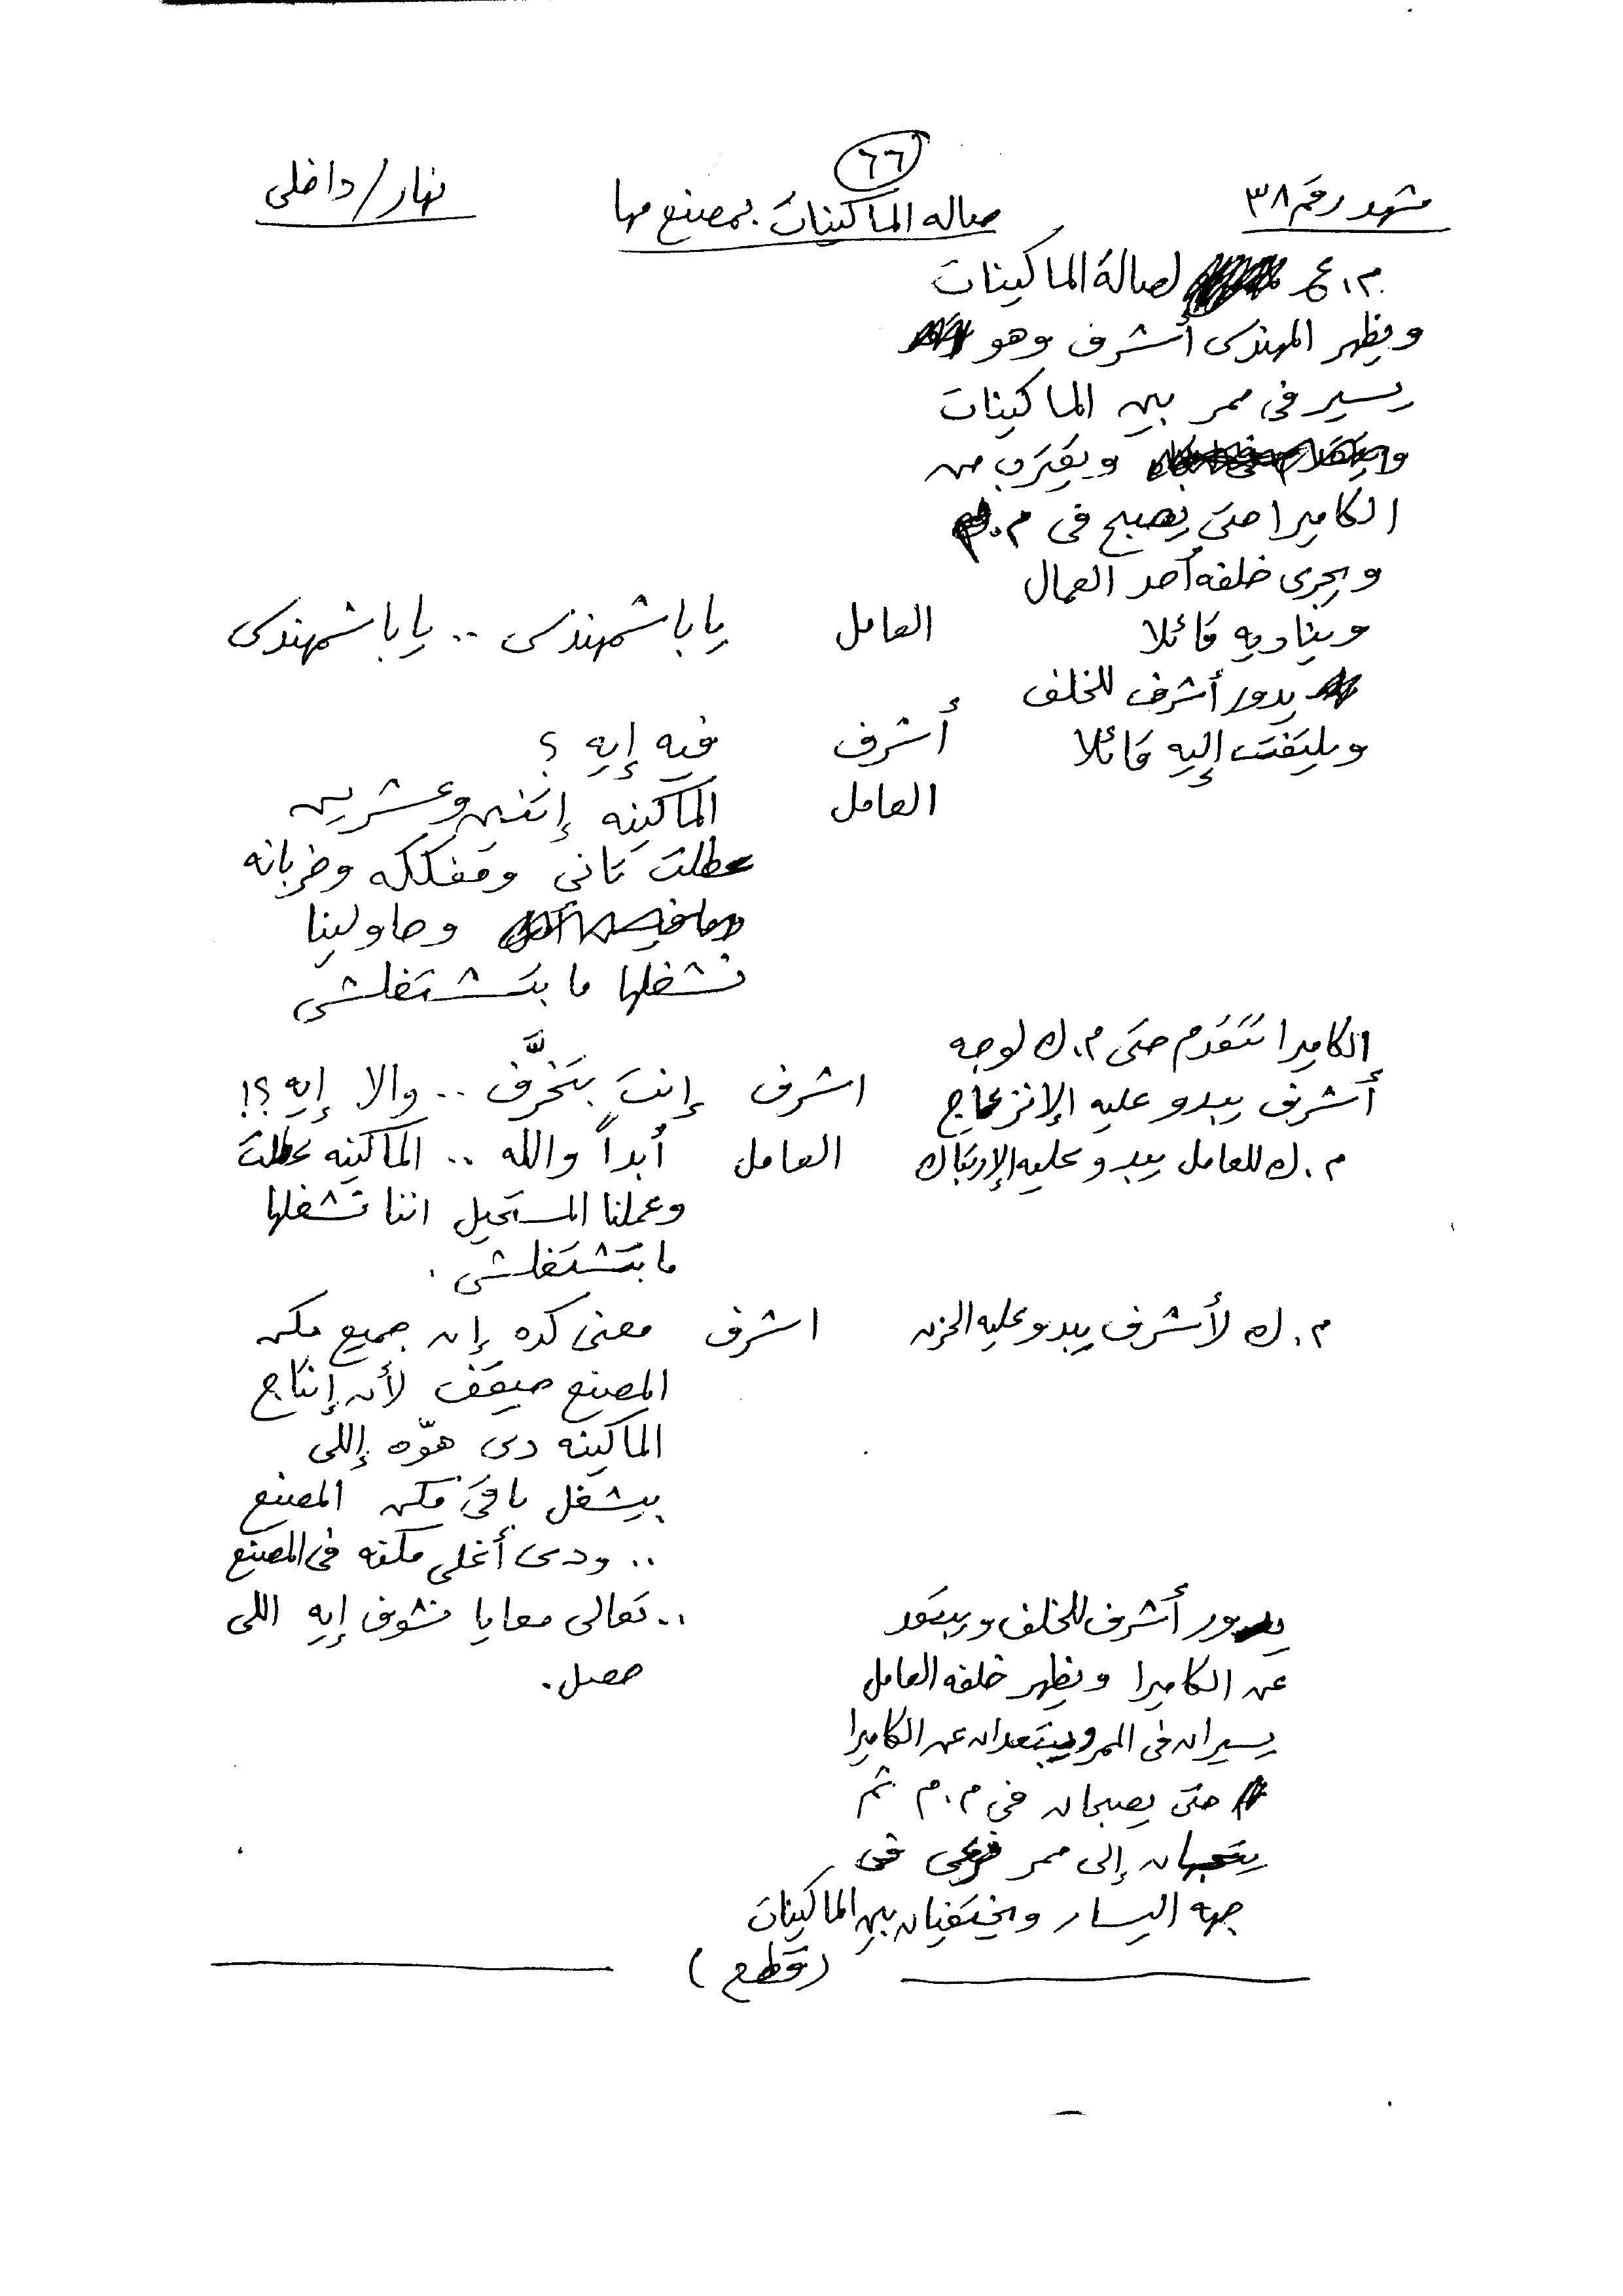 ٦٦
مشهد رقم ٣٨ صاله الماكينات بمصنع مها نهار/داخلى
م.ع لصالة الماكينات
ويظهر المهندس أشرف وهو
يسير فى ممر بين الماكينات
ويقترب من
الكاميرا حتى يصبح فى م.
ويجرى خلفه أحد العمال
ويناديه قائلا العامل يا باشمهندس .. يا باشمهندس
يدور أشرف للخلف
ويلتفت إليه قائلا أشرف فيه إيه ؟
العامل الماكينه إتنين وعشرين
عطلت تانى ومفككه وخربانه
وحاولينا
نشغلها ما بتشتغلشى
الكاميرا تتقدم حتى م.ك لوجه
أشرف يبدو عليه الإنزعاج اشرف إنت بتخرَّف .. والا إيه ؟!
م.ك للعامل يبدو عليه الإرتباك العامل أبداً والله .. الماكينه عطلت
وعملنا المستحيل اننا نشغلها
ما بتشتغلشى .
م.ك لأشرف يبدو عليه الحزن اشرف معنى كده إن جميع مكن
المصنع حيقف لأن إنتاج
الماكينه دى هوّه إللى
بيشغل باقى مكن المصنع
.. ودى أغلى مكنه فى المصنع
يدور أشرف للخلف ويبتعد .. تعالى معايا نشوف إيه اللى
عن الكاميرا ويظهر خلفه العامل حصل .
يسيران فى الممر ويبتعدان عن الكاميرا
حتى يصبحان فى م.م ثم
يتجهان إلى ممر فرعى فى
جهه اليسار ويختفيان بين الماكينات
(قطع)